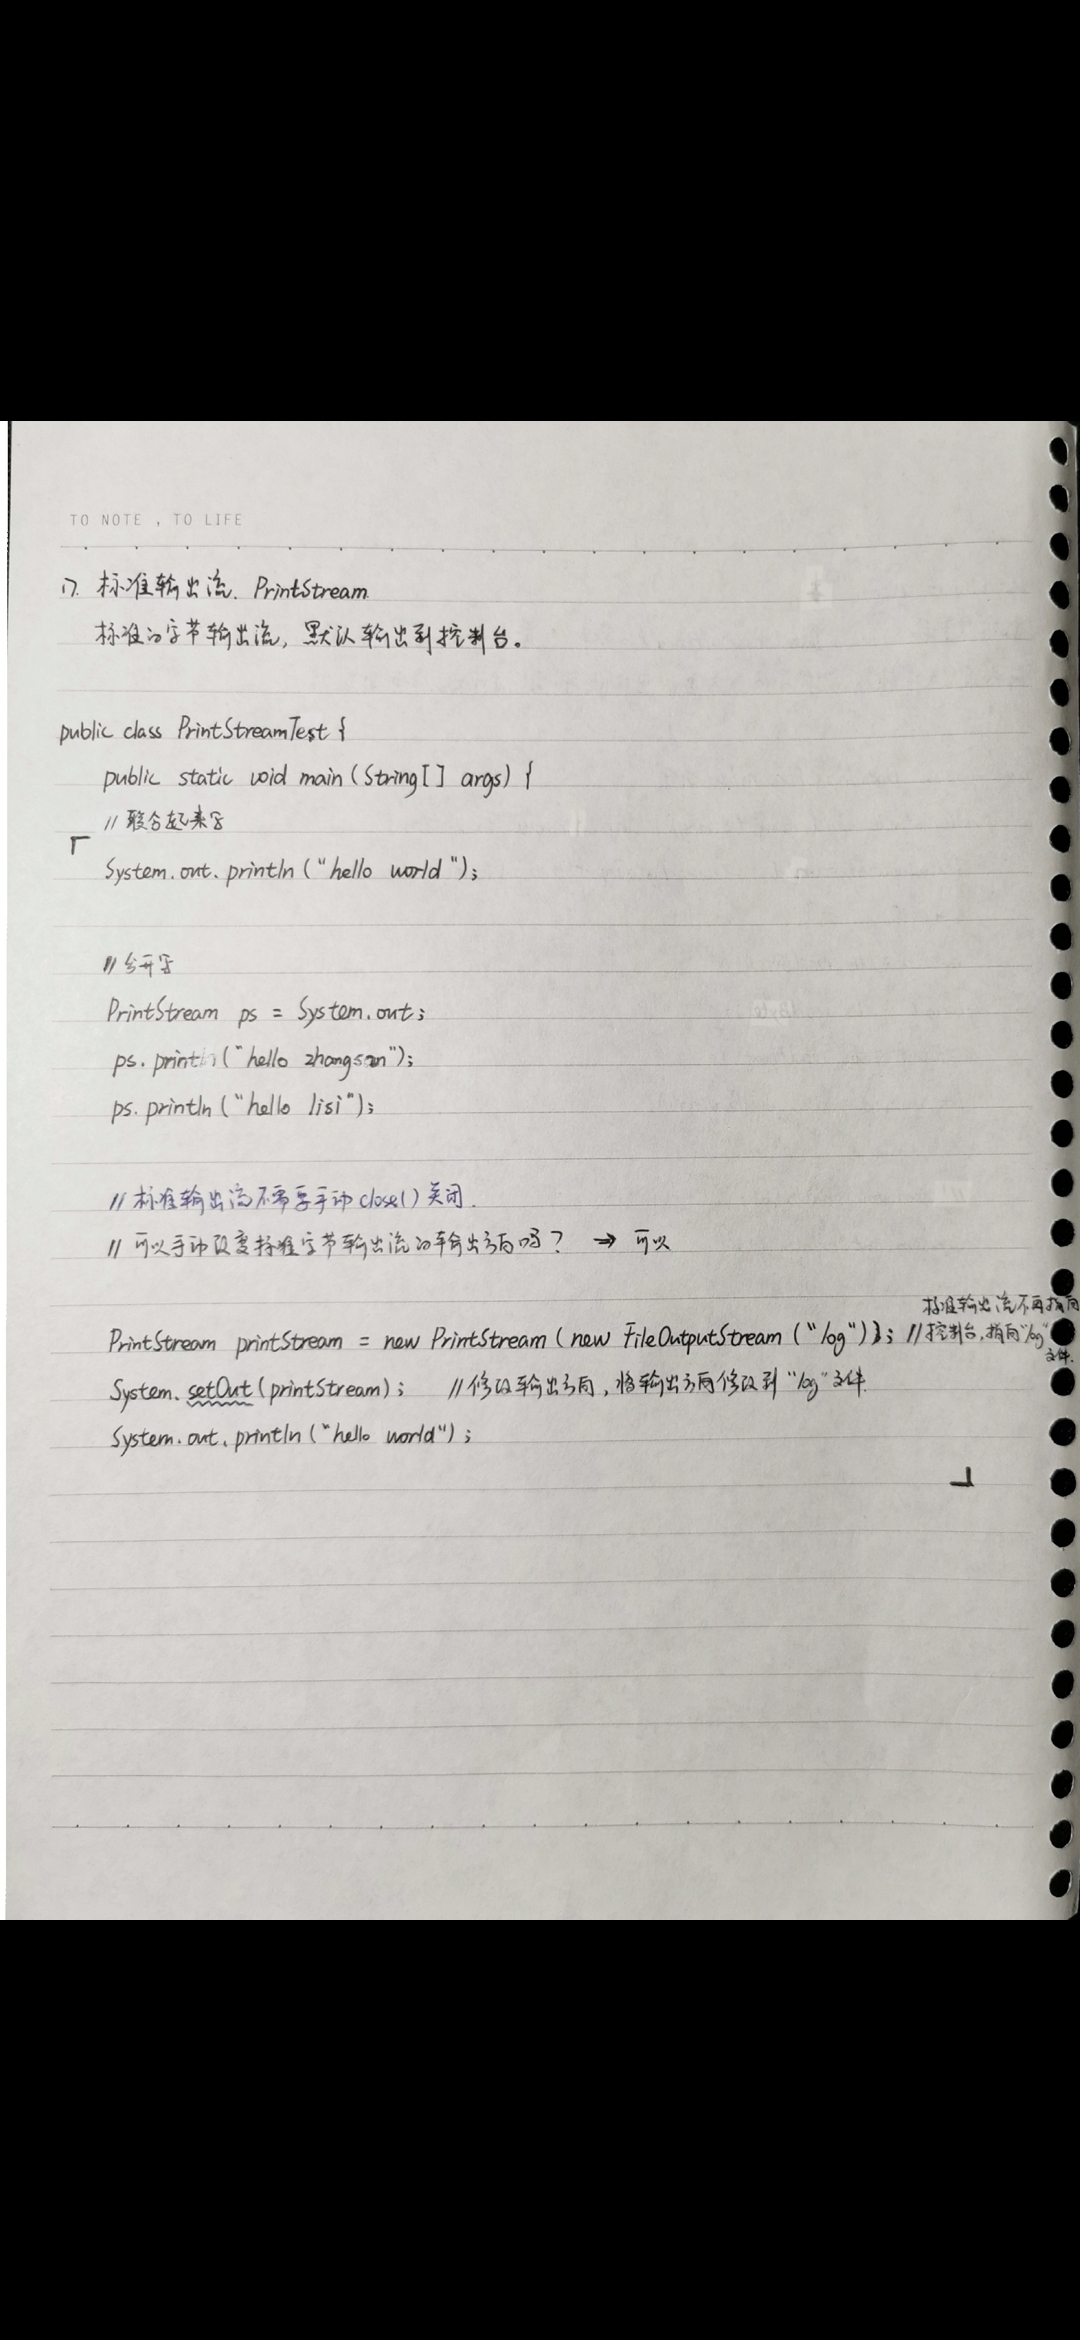 TO NOTE , TO LIFE
17. 标准输出流. PrintStream
标准的字节输出流, 默认输出到控制台。
public class PrintStreamTest {
public static void main (String[] args) {
// 联合起来写
System.out.println ("hello world");
// 分开写
PrintStream ps = System.out;
ps.println ("hello zhangsan");
ps.println ("hello lisi");
// 标准输出流不需要手动 close() 关闭.
// 可以手动改变标准字节输出流的输出方向吗? → 可以
标准输出流不再指向
PrintStream printStream = new PrintStream (new FileOutputStream ("log")); // 控制台, 指向"log"
文件.
System.setOut (printStream); // 修改输出方向, 将输出方向修改到 "log" 文件.
System.out.println ("hello world");